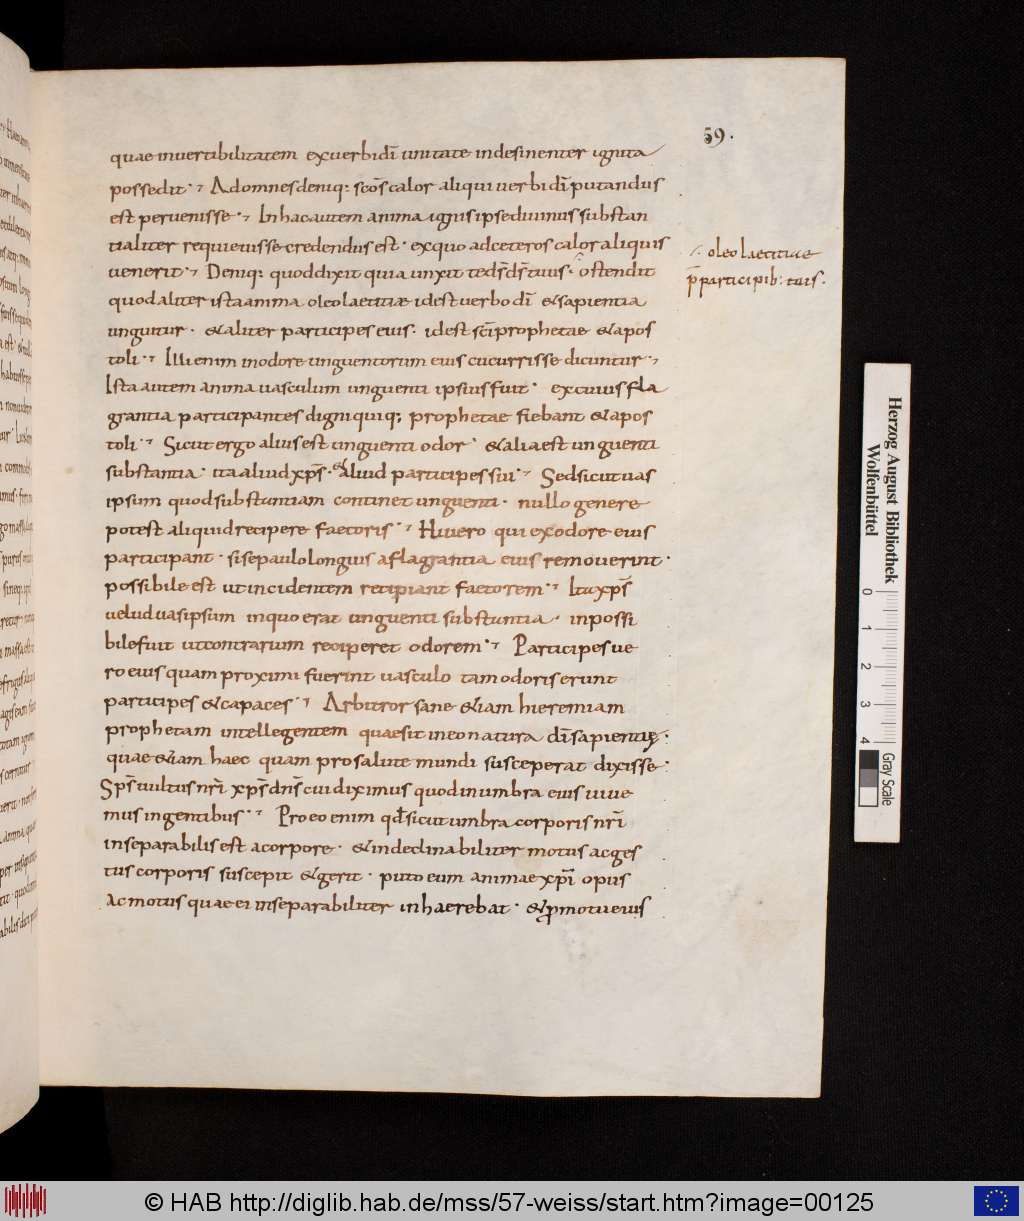 59.
quae invertibilitatem exverbi dī unitate indesinenter ignita
possedit · Ad omnes deniq: scōs calor aliqui verbi dī putandus
est pervenisse · In hac autem anima ignis ipse divinus substan
tialiter requievisse credendus est · ex quo ad ceteros calor aliquis
venerit · Deniq: quod dixit quia unxit te ds̄ ds̄ tuus · ostendit
oleo laetitiae
p̄ participib: tuis.
quod aliter ista anima oleo laetitiae id est verbo dī & sapientia
unguitur · & aliter participes eius · id est scī prophetae & apos
toli · Illi enim in odore unguentorum eius cucurrisse dicuntur
Ista autem anima vasculum unguenti ipsius fuit · ex cuius fla
grantia participantes digni quiq; prophetae fiebant & apos
toli · Sicut ergo alius est unguenti odor · & alia est unguenti
substantia · ita aliud xp̄s · & aliud participes sui · Sed sicut vas
ipsum quod substantiam continet unguenti · nullo genere
potest aliquid recipere faetoris · Hii vero qui ex odore eius
participant · si se paulo longius a flagrantia eius removerint ·
possibile est ut incidentem recipiant faetorem · Ita xp̄s
velud vas ipsum in quo erat unguenti substantia · inpossi
bile fuit ut contrarium reciperet odorem · Participes ve
ro eius quam proximi fuerint vasculo tam odoris erunt
participes & capaces · Arbitror sane &iam hieremiam
prophetam intellegentem quae sit in eo natura dī sapientię ·
quae &iam haec quam pro salute mundi susceperat dixisse ·
Sp̄s vultus nr̄i xp̄s dn̄s cui diximus quod in umbra eius vive
mus in gentibus · Pro eo enim qđ sicut umbra corporis nr̄i
inseparabilis est a corpore · & indeclinabiliter motus ac ges
tus corporis suscepit & gerit · puto eum animae xp̄i opus
ac motus quae ei inseparabiliter inhaerebat · & p motu eius
Herzog August Bibliothek
Wolfenbüttel
0 1 2 3 4
Gray Scale
© HAB http://diglib.hab.de/mss/57-weiss/start.htm?image=00125